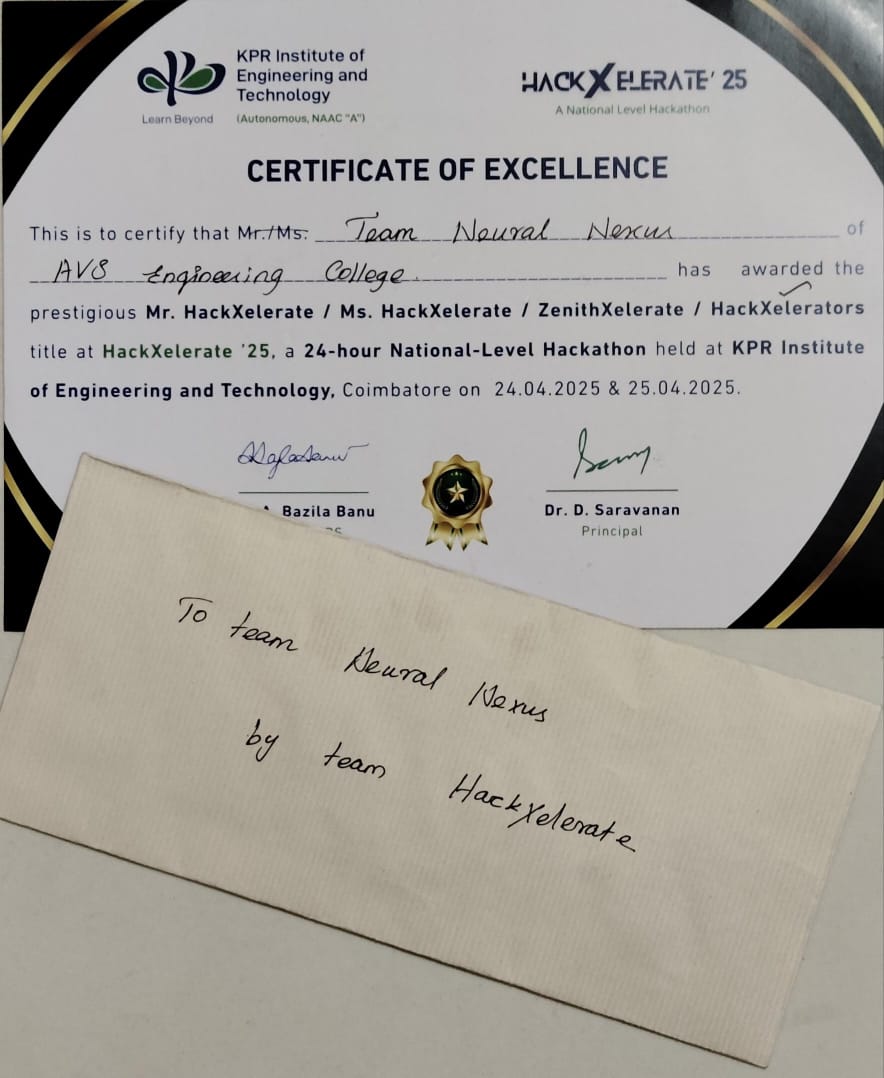 KPR Institute of
Engineering and
Technology
Learn Beyond
(Autonomous, NAAC "A")
HACKXELERATE' 25
A National Level Hackathon
CERTIFICATE OF EXCELLENCE
This is to certify that Mr./Ms. Team Neural Nexus of
AVS Engineering College. has awarded the
prestigious Mr. HackXelerate / Ms. HackXelerate / ZenithXelerate / HackXelerators
title at HackXelerate '25, a 24-hour National-Level Hackathon held at KPR Institute
of Engineering and Technology, Coimbatore on 24.04.2025 & 25.04.2025.
Bazila Banu
Dr. D. Saravanan
Principal
To team Neural Nexus
by team HackXelerate